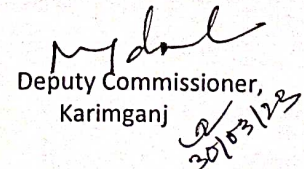 Deputy Commissioner,
Karimganj
30/03/23